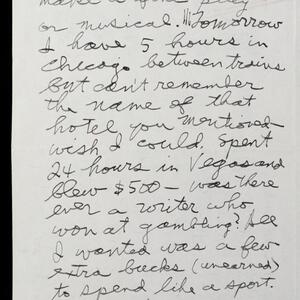 make a fine play
or musical. !!! Tomorrow
I have 5 hours in
Chicago between trains
but can't remember
the name of that
hotel you mentioned
wish I could. Spent
24 hours in Vegas and
blew $500 – was there
ever a writer who
won at gambling? All
I wanted was a few
extra bucks (unearned)
to spend like a sport.